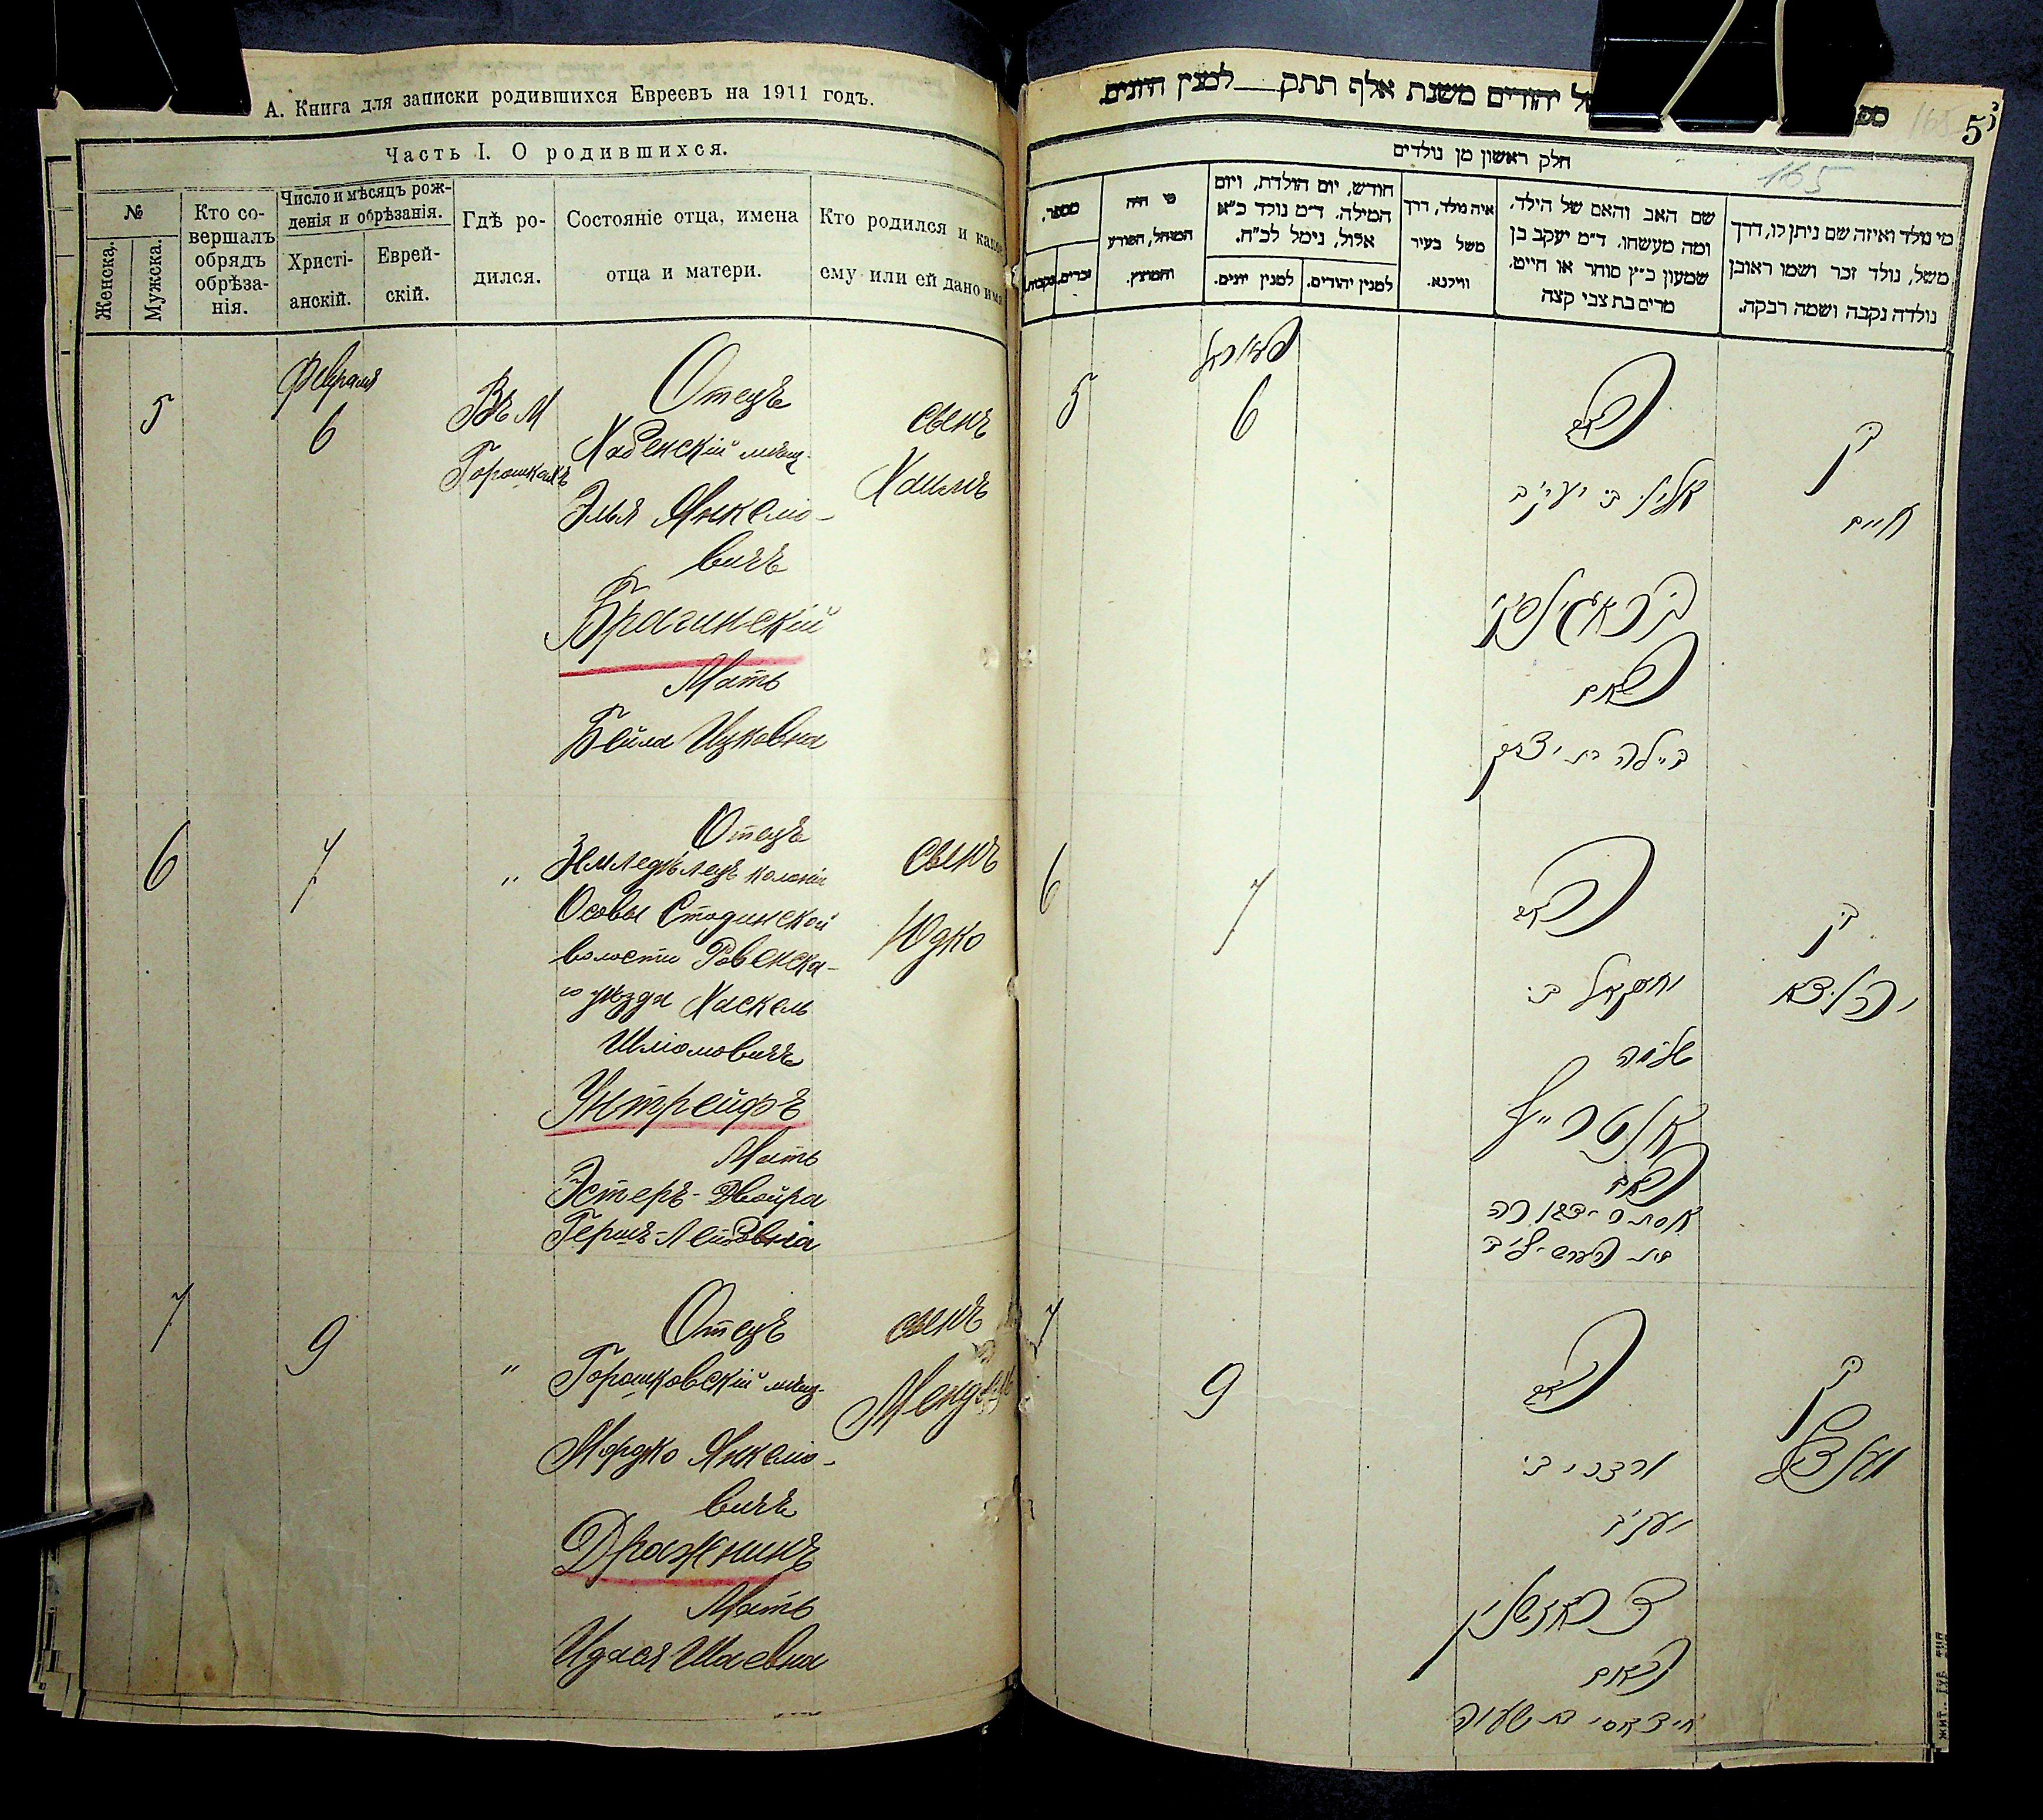 А. Книга для записки родившихся Евреевъ на 1911 годъ.
Часть I. О родившихся.
№
Женска.
Мужска.
Кто со-
вершалъ
обрядъ
обрѣза-
нія.
Число и мѣсяцъ рож-
денія и обрѣзанія.
Христі-
анскій.
Еврей-
скій.
Гдѣ ро-
дился.
Состояніе отца, имена
отца и матери.
Кто родился и како
ему или ей дано им
5
Февраля
6
Въ М
Горошкахъ
Отецъ
Хабенскій мѣщ.
Элья Янкелio-
вичъ
Брагинскій
Мать
Бейла Ицковна
сынъ
Хаимъ
6
7
"
Отецъ
Земледѣлецъ колоніи
Осовы Стодинской
волости Ровенска-
го уѣзда Хаскель
Шліомовичъ
Унтрейфъ
Мать
Эстеръ-Двойра
Гершъ-Лейбовна
сынъ
Юдко
7
9
"
Отецъ
Горошковскій мѣщ.
Мордко Янкелio-
вичъ
Дражнинъ
Мать
Идася Шаевна
сынъ
Мендель
ל יהודים משנת אלף תתק___למנין היונים
165
5
חלק ראשון מן נולדים
165
מספר.
זכרים.
נקבות.
מי היה
המוהל, הפורע
והמוצץ.
חודש, יום הולדת, ויום
המילה. ד"מ נולד כ"א
אלול, נימל לכ"ח.
למנין יונים.
למנין יהודים.
איה נולד, דרך
משל בעיר
ווילנא.
שם האב והאם של הילד,
ומה מעשהו. ד"מ יעקב בן
שמעון כ"ץ סוחר או חייט.
מרים בת צבי קצה
מי נולד ואיזה שם ניתן לו, דרך
משל, נולד זכר ושמו ראובן
נולדה נקבה ושמה רבקה.
5
6
האב
אליו בן יעקב
בראגינסקי
האם
ביילה בת יצחק
בן
חיים
6
7
האב
יחזקאל בן
שלמה
אנטרייף
האם
אסתר דווירה
בת הערש ליב
בן
יהודא
7
9
האב
מרדכי בן
יעקב
דראזשנין
האם
אידאסי בת ישעיה
בן
מענדל
ЖИТ. ГУБ. ТИП